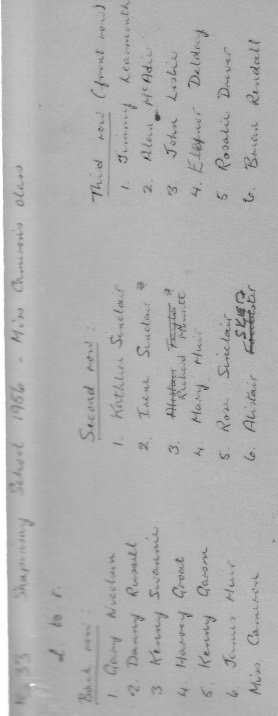 33 Shapinsay School 1966 - Miss Cameron's class
L to r.
Back row:
1. Gary Nicolson
2. Danny Russell
3 Kenny Swannie
4. Harvey Groat
5. Kenny Garson
6. James Muir
Miss Cameron
Second row:
1. Kathleen Sinclair
2. Irene Sinclair *
3. Alistair *
Richard
4 Mary Muir
5. Rose Sinclair
6. Alistair SKEA
Third row (front row)
1. Jimmy Learmonth
2. Alan McAdie
3 John Leslie
4. Eleanor Delday
5 Rosalie Dower
6. Brian Rendall